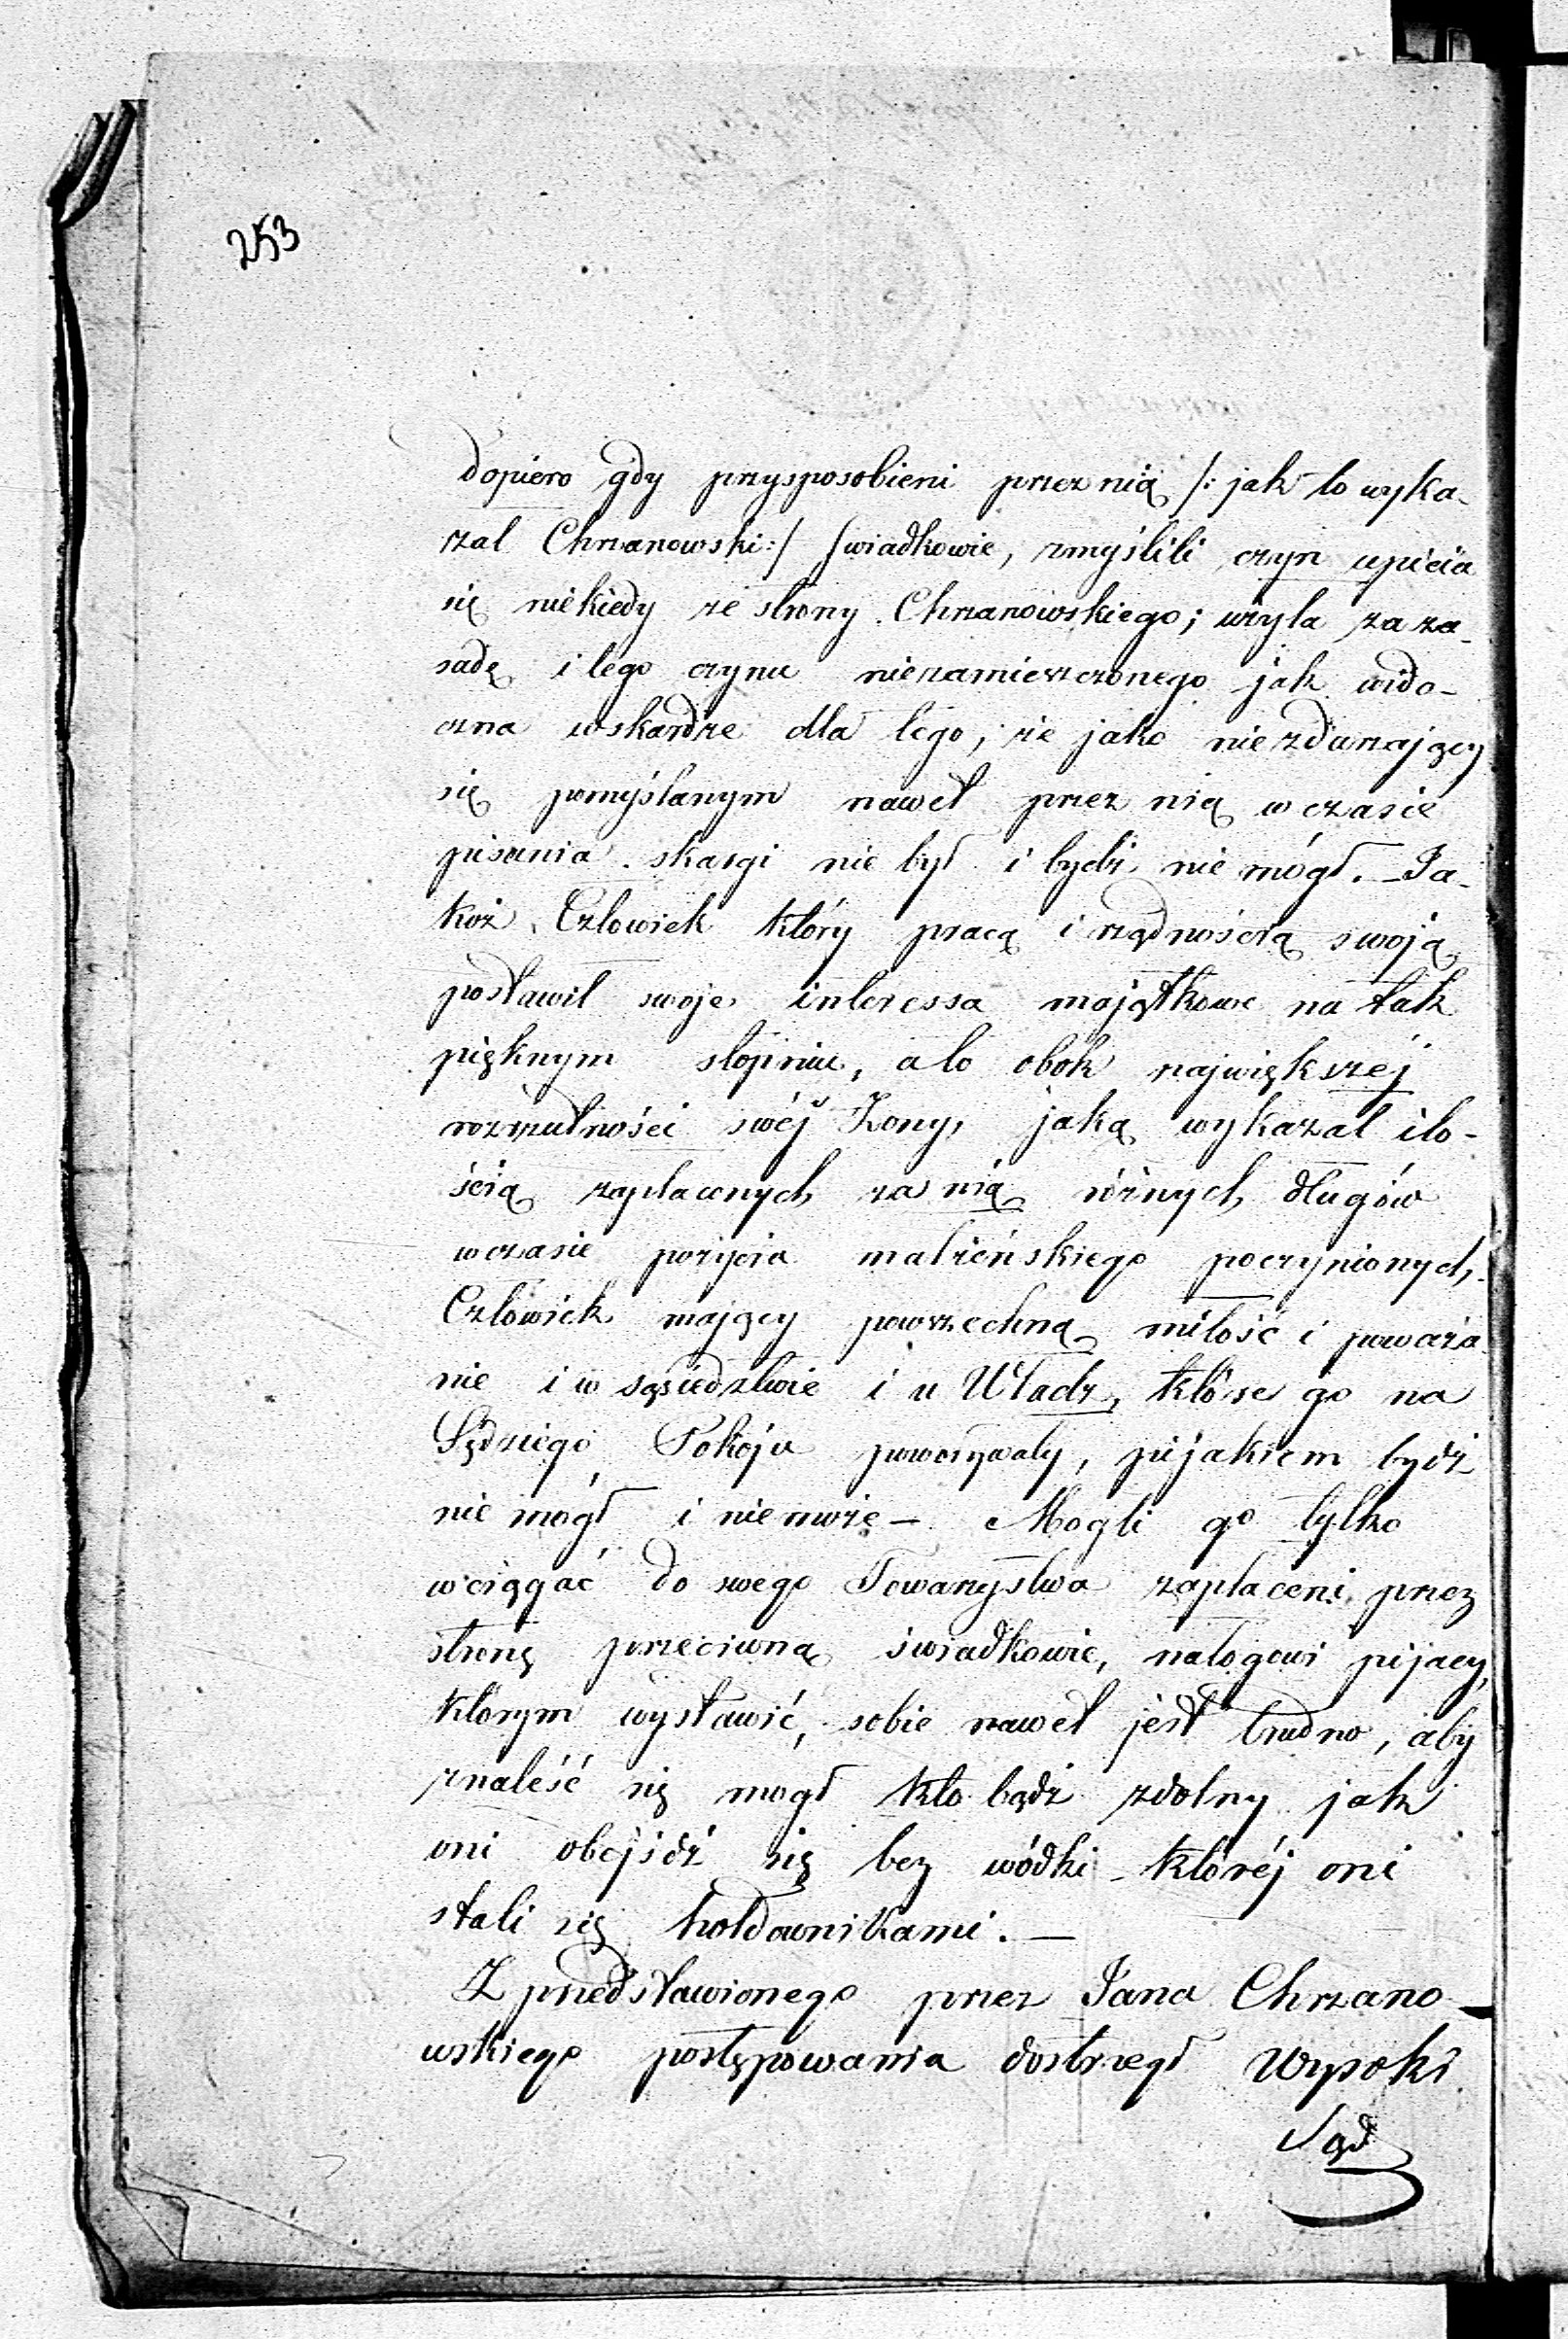 253
dopiero gdy przysposobieni przez nią /: jak to wyka-
zal Chrzanowski :/ świadkowie, zmyślili czyn upicia
się niekiedy ze strony Chrzanowskiego; użyła za za-
sadę i tego czynu niezamieszczonego jak wido-
czna w skardze dla tego, że jako niezdarzający
się pomyślanym nawet przez nią w czasie
pisania skargi nie był i bydź nie mógł. – Ja-
koż Człowiek który pracą i rządnością swoją
postawił swoje interessa majątkowe na tak
pięknym stopniu, a to obok największéj
rozrzutności swéj Żony, jaką wykazał ilo-
ścią zapłaconych za nią różnych długów
w czasie pożycia małżeńskiego poczynionych,
Człowiek mający powszechną miłość i poważa-
nie i w sąsiedztwie i u Władz, które go na
Sędziego Pokoju powoływały, pijakiem bydź
nie mógł i nie może – Mogli go tylko
wciągać do swego Towarzystwa zapłaceni przez
stronę przeciwną świadkowie, nałogowi pijacy,
którym wystawić sobie nawet jest trudno, aby
znaleść się mógł kto bądź zdolny jak
oni obejśdź się bez wódki któréj oni
stali się hołdownikami. –
Z przedstawionego przez Jana Chrzano-
wskiego postępowania dostrzegł Wysoki
Sąd